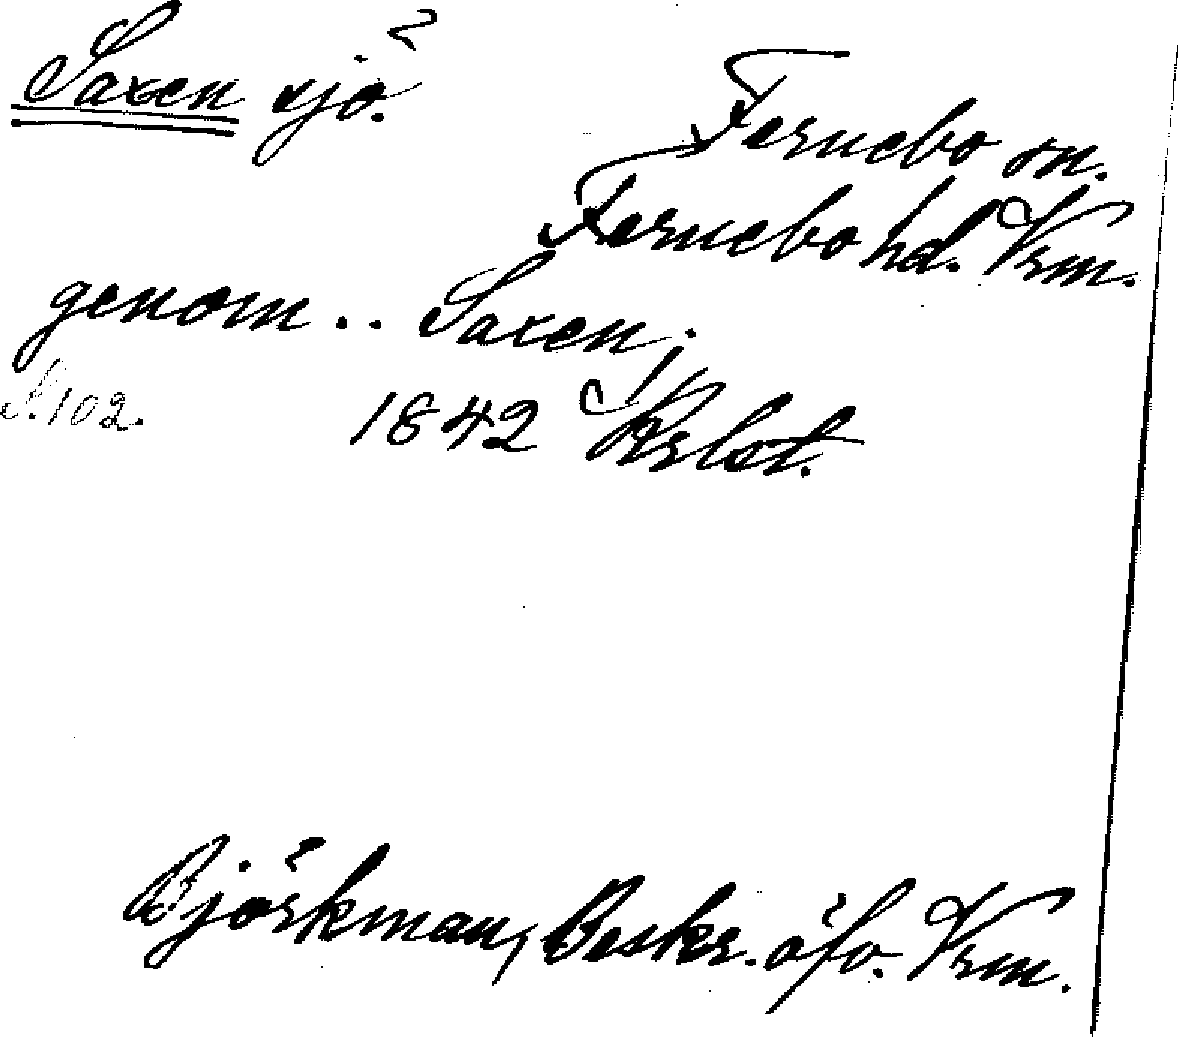 Saxen sjö.
Fernebo sn.
Fernebo hd. Vrm.
genom .. Saxen;
S. 102. 1842 Krlst.
Björkman, Beskr. öfv. Vrm.